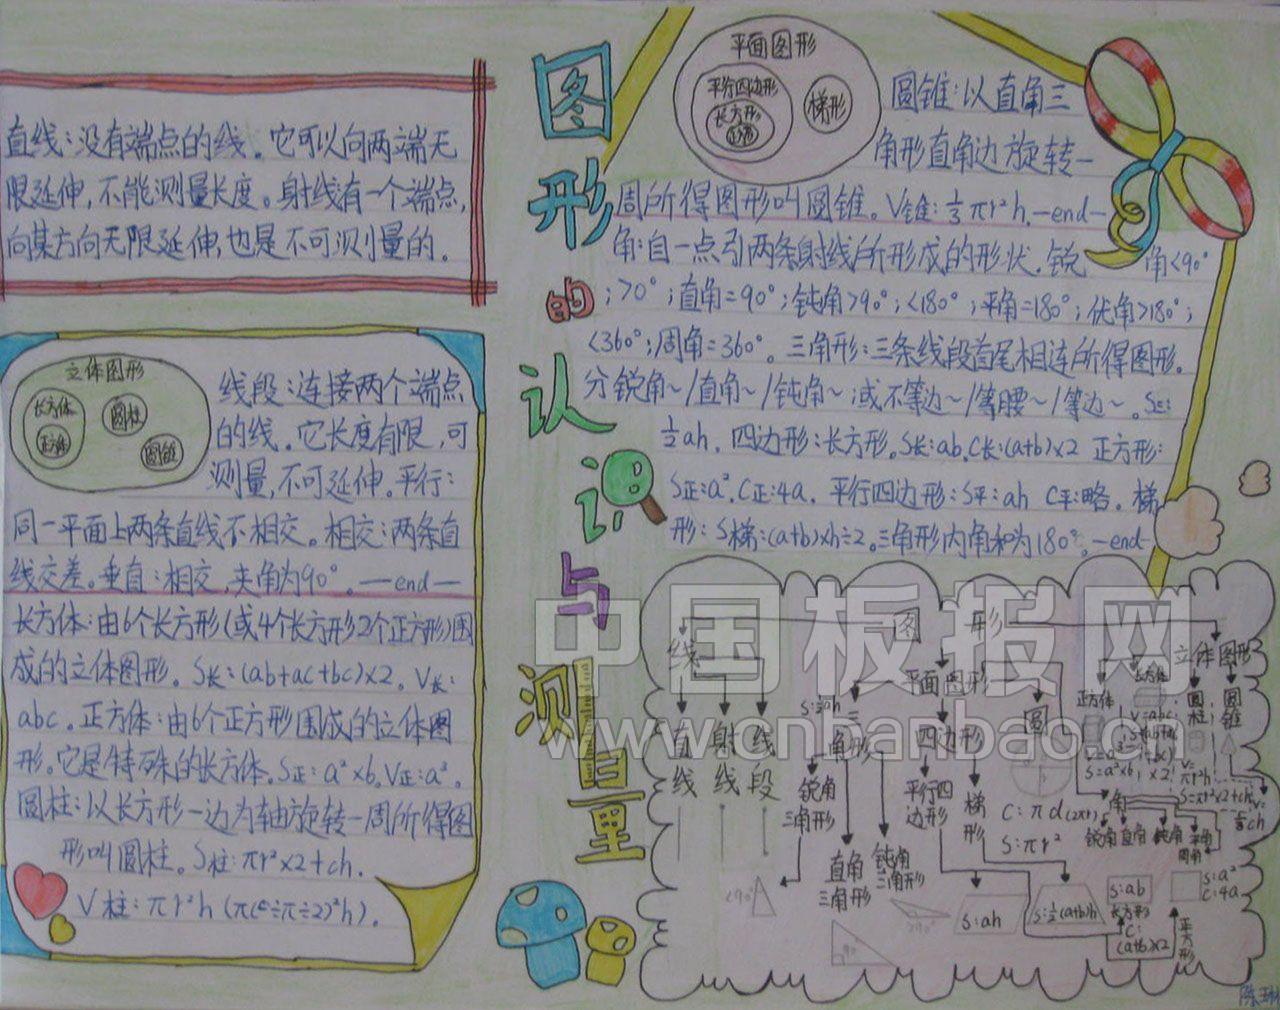 图形的认识与测量
直线：没有端点的线。它可以向两端无
限延伸，不能测量长度。射线有一个端点，
向某方向无限延伸，也是不可测量的。
立体图形
长方体
正方体
圆柱
圆锥
线段：连接两个端点
的线。它长度有限，可
测量，不可延伸。平行：
同一平面上两条直线不相交。相交：两条直
线交差。垂直：相交，夹角为90°。—end—
长方体：由6个长方形（或4个长方形2个正方形）围
成的立体图形。S长：(ab+ac+bc)×2。V长：
abc。正方体：由6个正方形围成的立体图
形。它是特殊的长方体。S正：a²×6。V正：a³。
圆柱：以长方形一边为轴旋转一周所得图
形叫圆柱。S柱：πr²×2+ch.
V柱：πr²h（π(c÷π÷2)²h）.
平面图形
平行四边形
长方形
正方形
梯形
圆锥：以直角三
角形直角边旋转一
周所得图形叫圆锥。V锥：⅓πr²h.—end—
角：自一点引两条射线所形成的形状.锐角<90°
;>0°;直角=90°;钝角>90°;<180°;平角=180°;优角>180°;
<360°;周角=360°。三角形：三条线段首尾相连所得图形.
分锐角~/直角~/钝角~;或不等边~/等腰~/等边~。S三:
½ah.四边形：长方形.S长:ab.C长:(a+b)×2 正方形:
S正:a².C正:4a.平行四边形:S平:ah C平:略.梯
形:S梯:(a+b)×h÷2。三角形内角和为180°。—end—
图形
线
直线
射线
线段
平面图形
S:½ah
三角形
锐角三角形
直角三角形
钝角三角形
<90°
90°
>90°
四边形
平行四边形
梯形
S:ah
S:½(a+b)h
S:ab
长方形
C:(a+b)×2
S:a²
C:4a
正方形
圆
C:πd(2πr)
S:πr²
角
锐角 直角 钝角 平角
周角
立体图形
正方体
长方体
圆柱
圆锥
V=a³
S=a²×6
V=abc
V=πr²h
S=πr²×2+ch
中国板报网
www.cnbanbao.cn